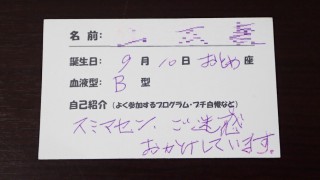 名 前:
誕生日: 9 月 10 日 おとめ 座
血液型: B 型
自己紹介 (よく参加するプログラム・プチ自慢など)
スミマセン、ご迷惑
おかけしています。